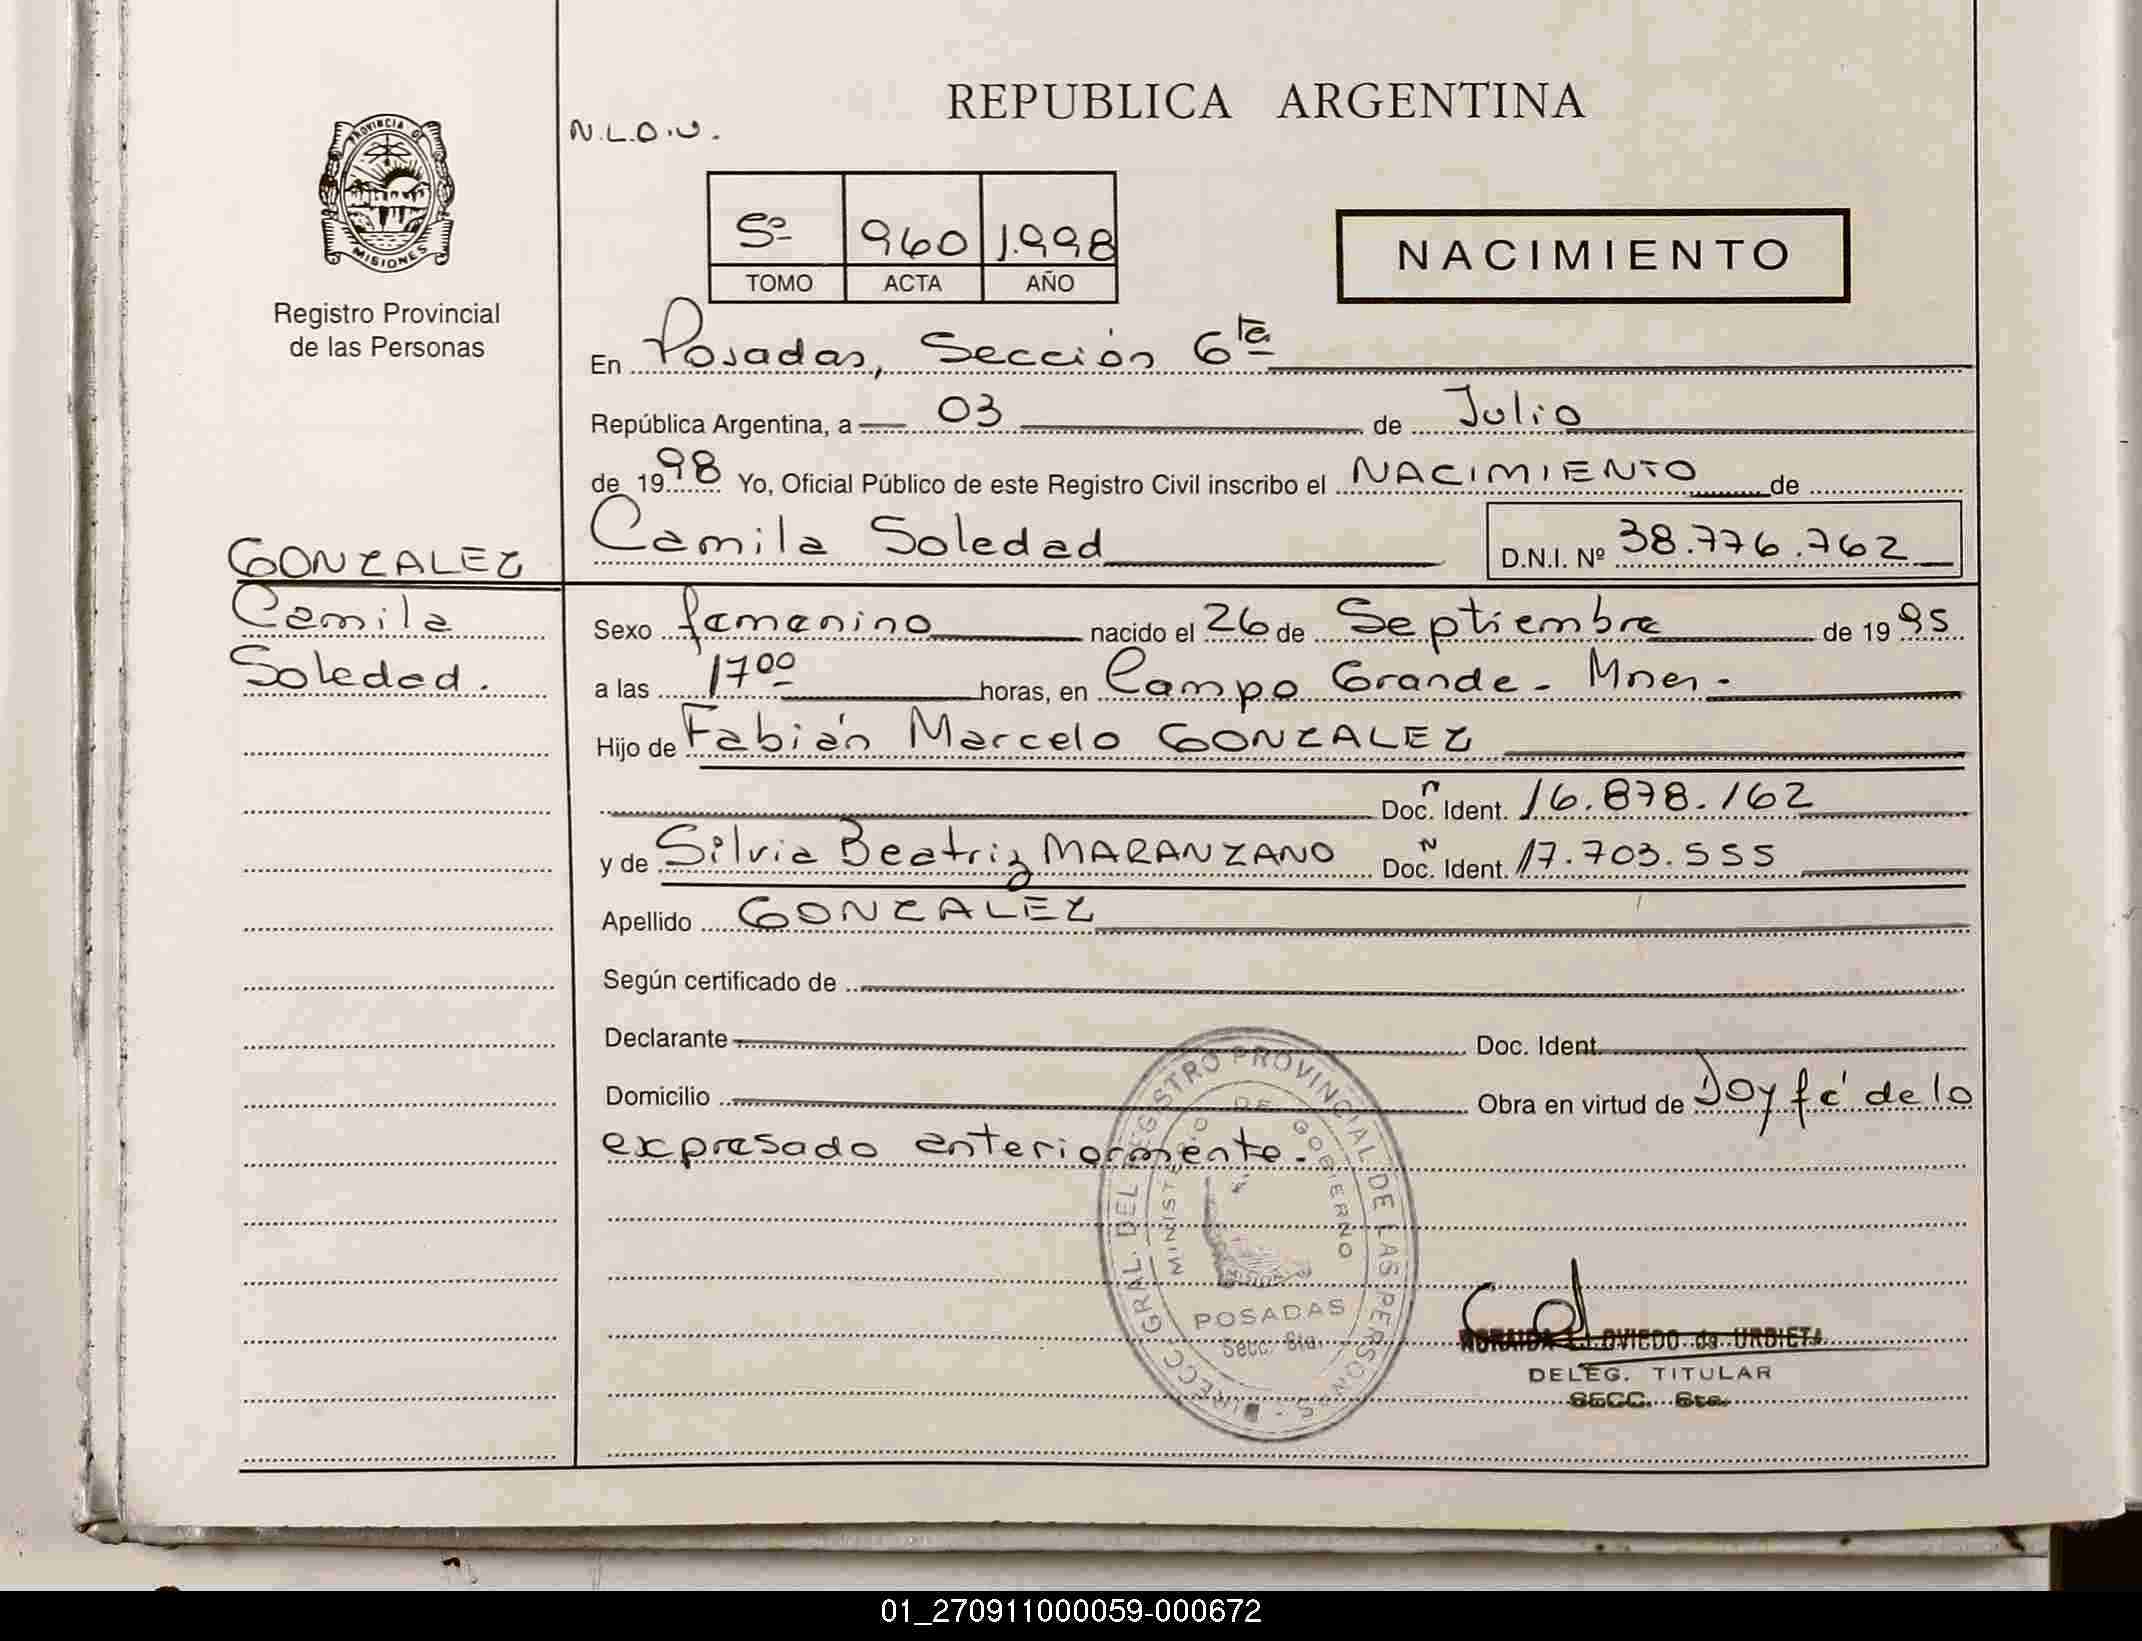 REPUBLICA ARGENTINA
N.L.O.U.
PROVINCIA DE
MISIONES
Registro Provincial
de las Personas
5º 960 1.998
TOMO ACTA AÑO
NACIMIENTO
En Posadas, Sección 6ta
República Argentina, a 03 de Julio
de 1998 Yo, Oficial Público de este Registro Civil inscribo el NACIMIENTO de
Camila Soledad D.N.I. Nº 38.776.762
GONZALEZ
Camila
Soledad.
Sexo femenino nacido el 26 de Septiembre de 1995
a las 17 00 horas, en Campo Grande - Mnes -
Hijo de Fabián Marcelo GONZALEZ
Doc. Ident. 16.878.162
y de Silvia Beatriz MARANZANO Doc. Ident. 17.703.555
Apellido GONZALEZ
Según certificado de
Declarante Doc. Ident.
Domicilio Obra en virtud de Doy fé de lo
expresado anteriormente.
GRAL. DEL REGISTRO PROVINCIAL DE LAS PERSONAS
MINISTERIO DE GOBIERNO
POSADAS
Secc. 6ta.
OVIEDO de URBIETA
DELEG. TITULAR
SECC. 6ta.
01_270911000059-000672